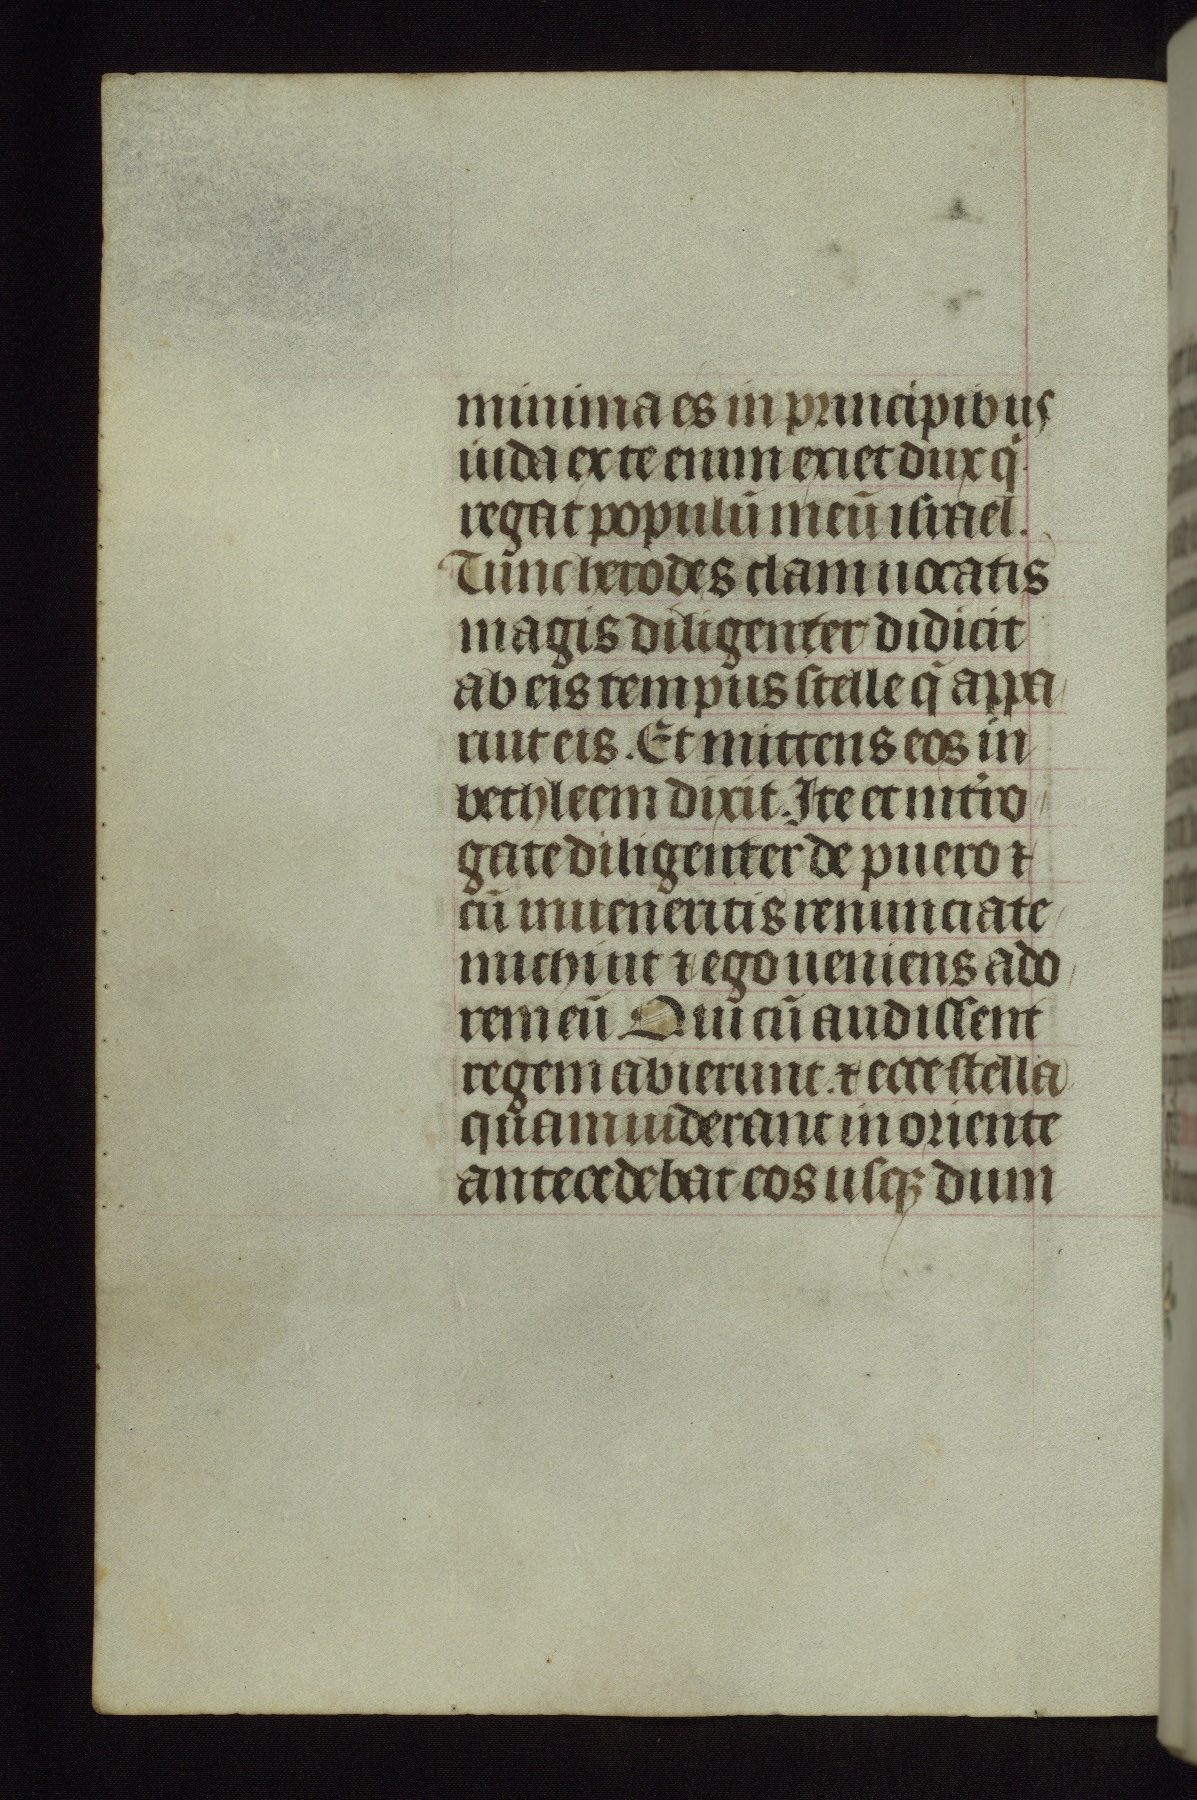 minima es in principibus
iuda ex te enim exiet dux qͥ
regat populū meū israel.
Tunc herodes clam uocatis
magis diligenter didicit
ab eis tempus stelle q̄ appa
ruit eis. Et mittens eos in
bethleem dixit. Ite et int̕ro
gate diligenter de puero ⁊
cū inueneritis renunciate
michi ut ⁊ ego ueniens ado
rem eū. Qui cū audissent
regem abierunt. ⁊ ecce stella
quam uiderant in oriente
antecedebat eos usqꝫ dum